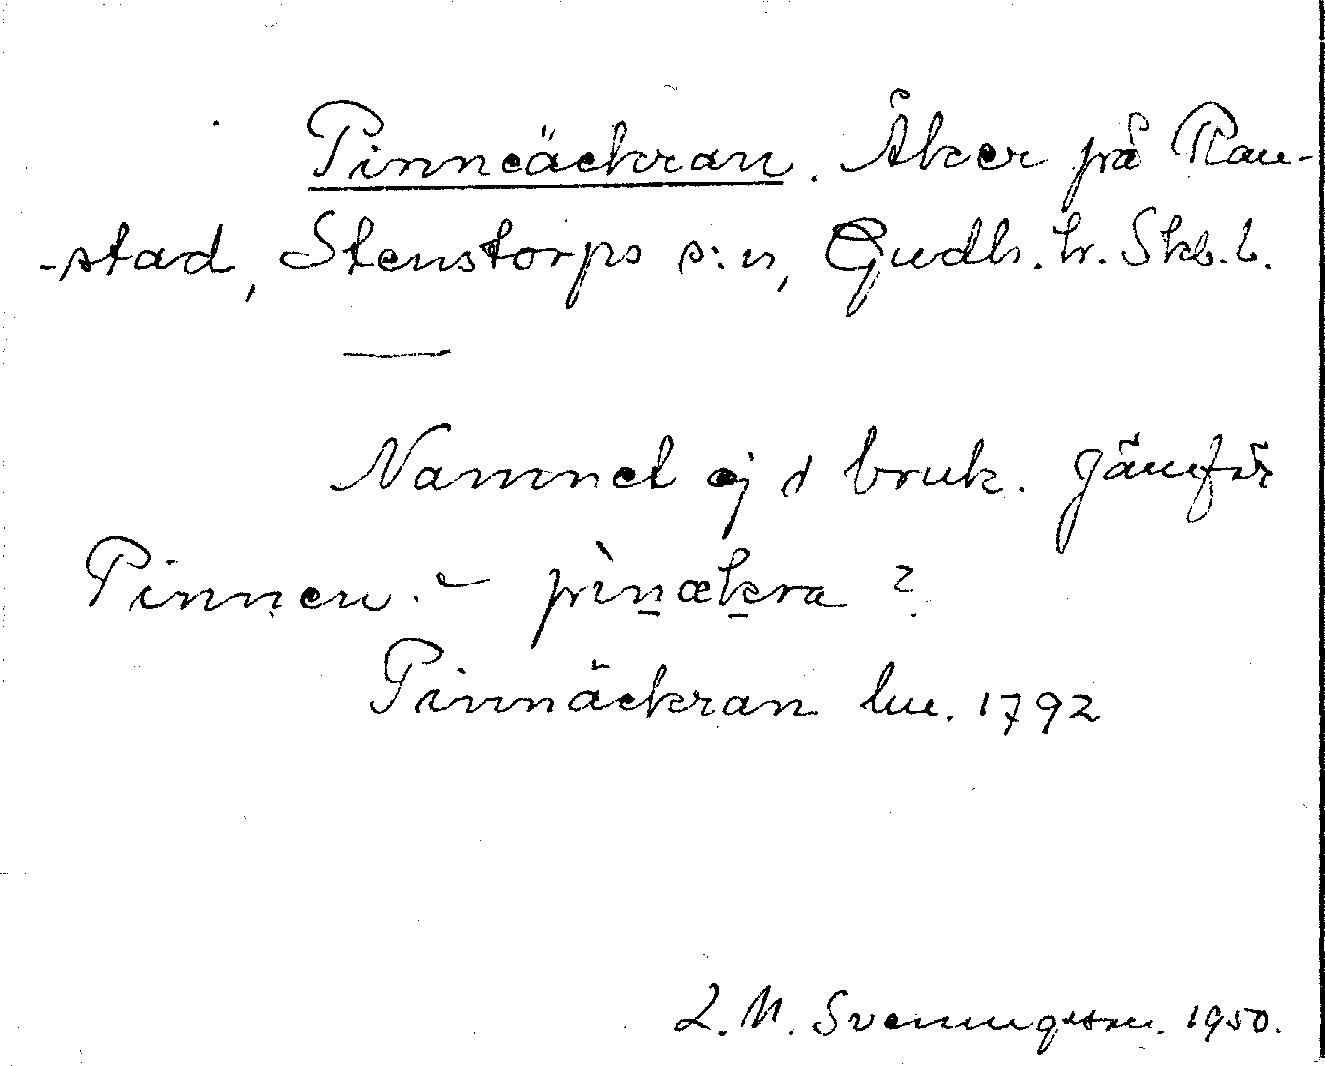 Pinneäckran. Åker på Rau-
-stad, Stenstorps s:n, Gudh. hr. Skb.l.
Namnet ej i bruk. Jämför
Pinnen. – pìn̠æk̠ra ?
Pinnäckran lm. 1792
L. M. Svenungsson. 1950.